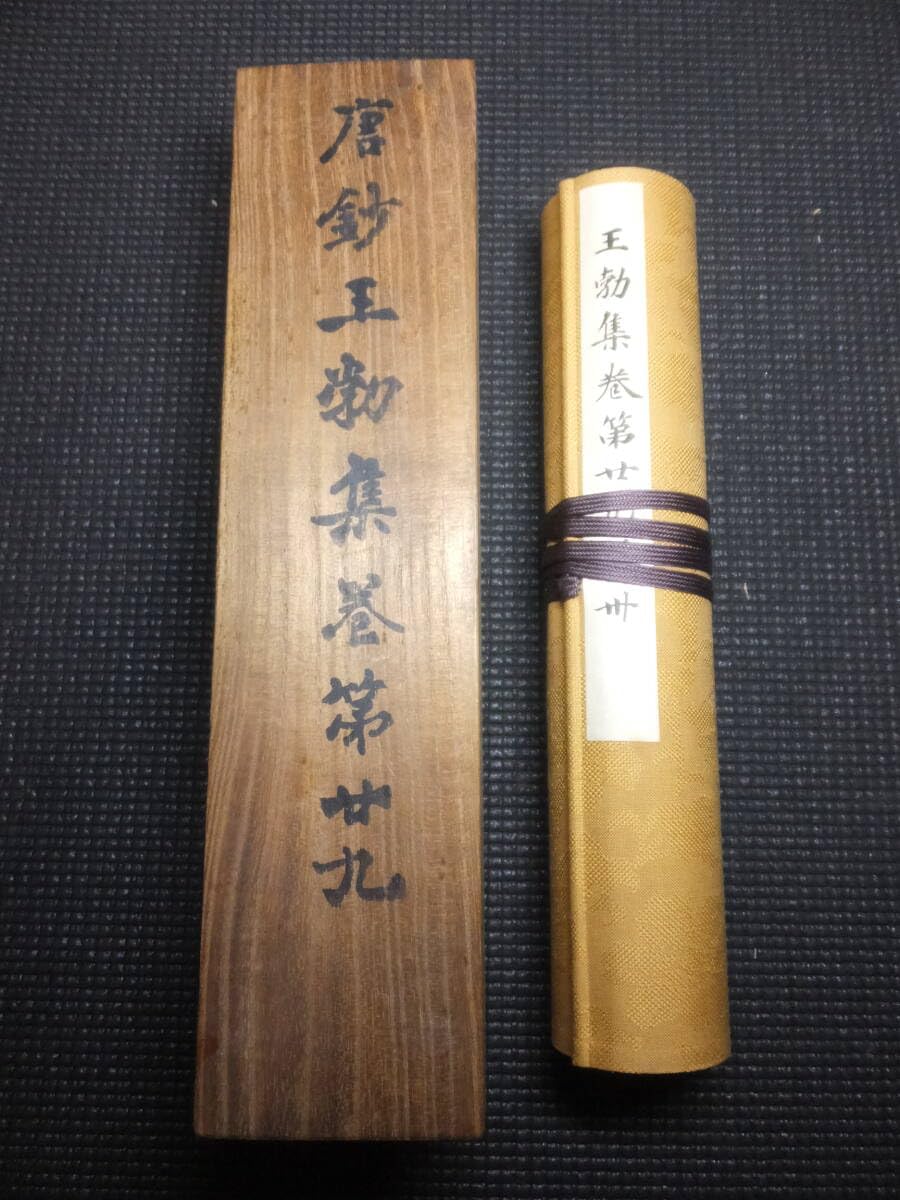 唐鈔王勃集卷第廿九
王勃集卷第廿
卅